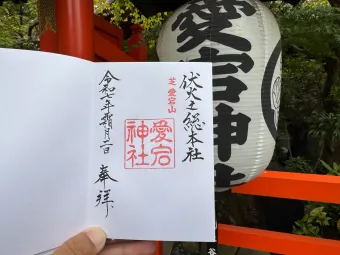 伏火之総本社
芝 愛宕山
愛宕
神社
奉拝
令和七年霜月二日
愛宕神社